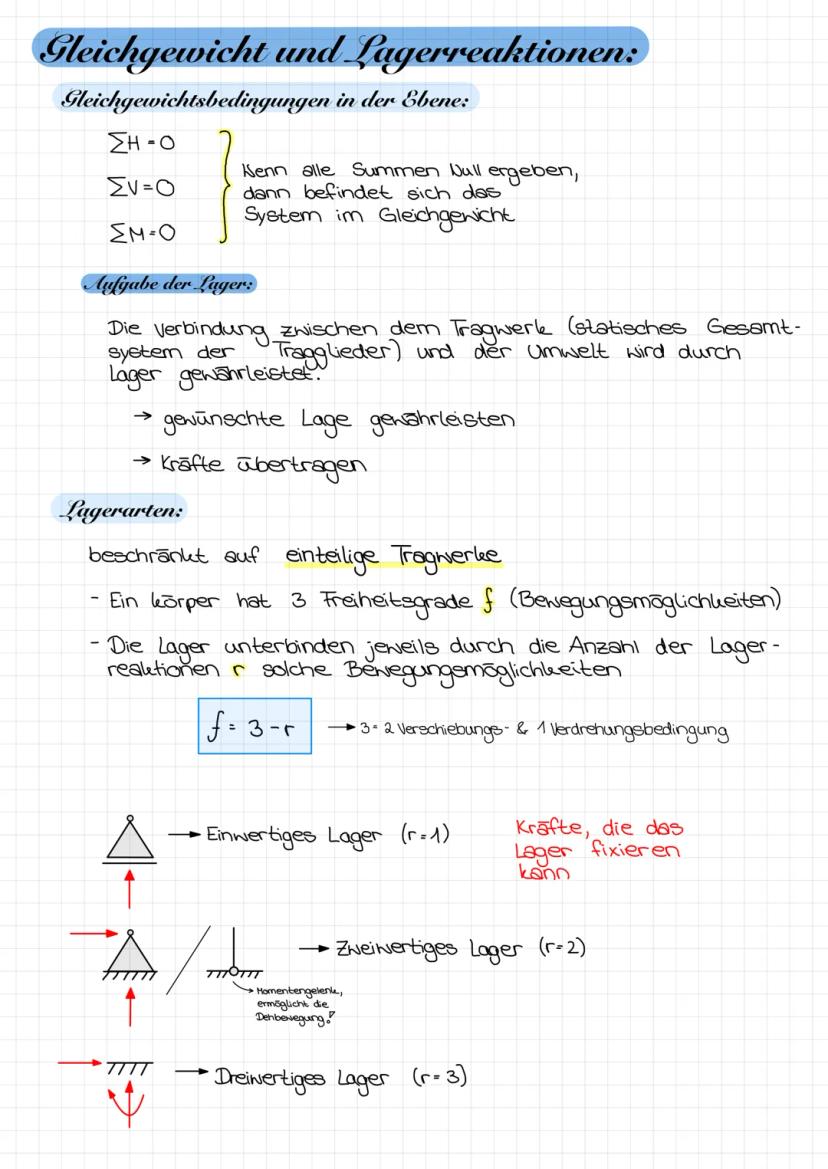 Gleichgewicht und Lagerreaktionen:
Gleichgewichtsbedingungen in der Ebene:
ΣH = 0
ΣV = 0
ΣM = 0
Wenn alle Summen Null ergeben,
dann befindet sich das
System im Gleichgewicht
Aufgabe der Lager:
Die Verbindung zwischen dem Tragwerk (statisches Gesamt-
system der Tragglieder) und der Umwelt wird durch
Lager gewährleistet.
→ gewünschte Lage gewährleisten
→ Kräfte übertragen
Lagerarten:
beschränkt auf einteilige Tragwerke
- Ein Körper hat 3 Freiheitsgrade f (Bewegungsmöglichkeiten)
- Die Lager unterbinden jeweils durch die Anzahl der Lager-
reaktionen r solche Bewegungsmöglichkeiten
f = 3 - r → 3 = 2 Verschiebungs- & 1 Verdrehungsbedingung
→ Einwertiges Lager (r = 1)
Kräfte, die das
Lager fixieren
kann
→ Zweiwertiges Lager (r = 2)
→ Momentengelenk,
ermöglicht die
Dehbewegung!
→ Dreiwertiges Lager (r = 3)